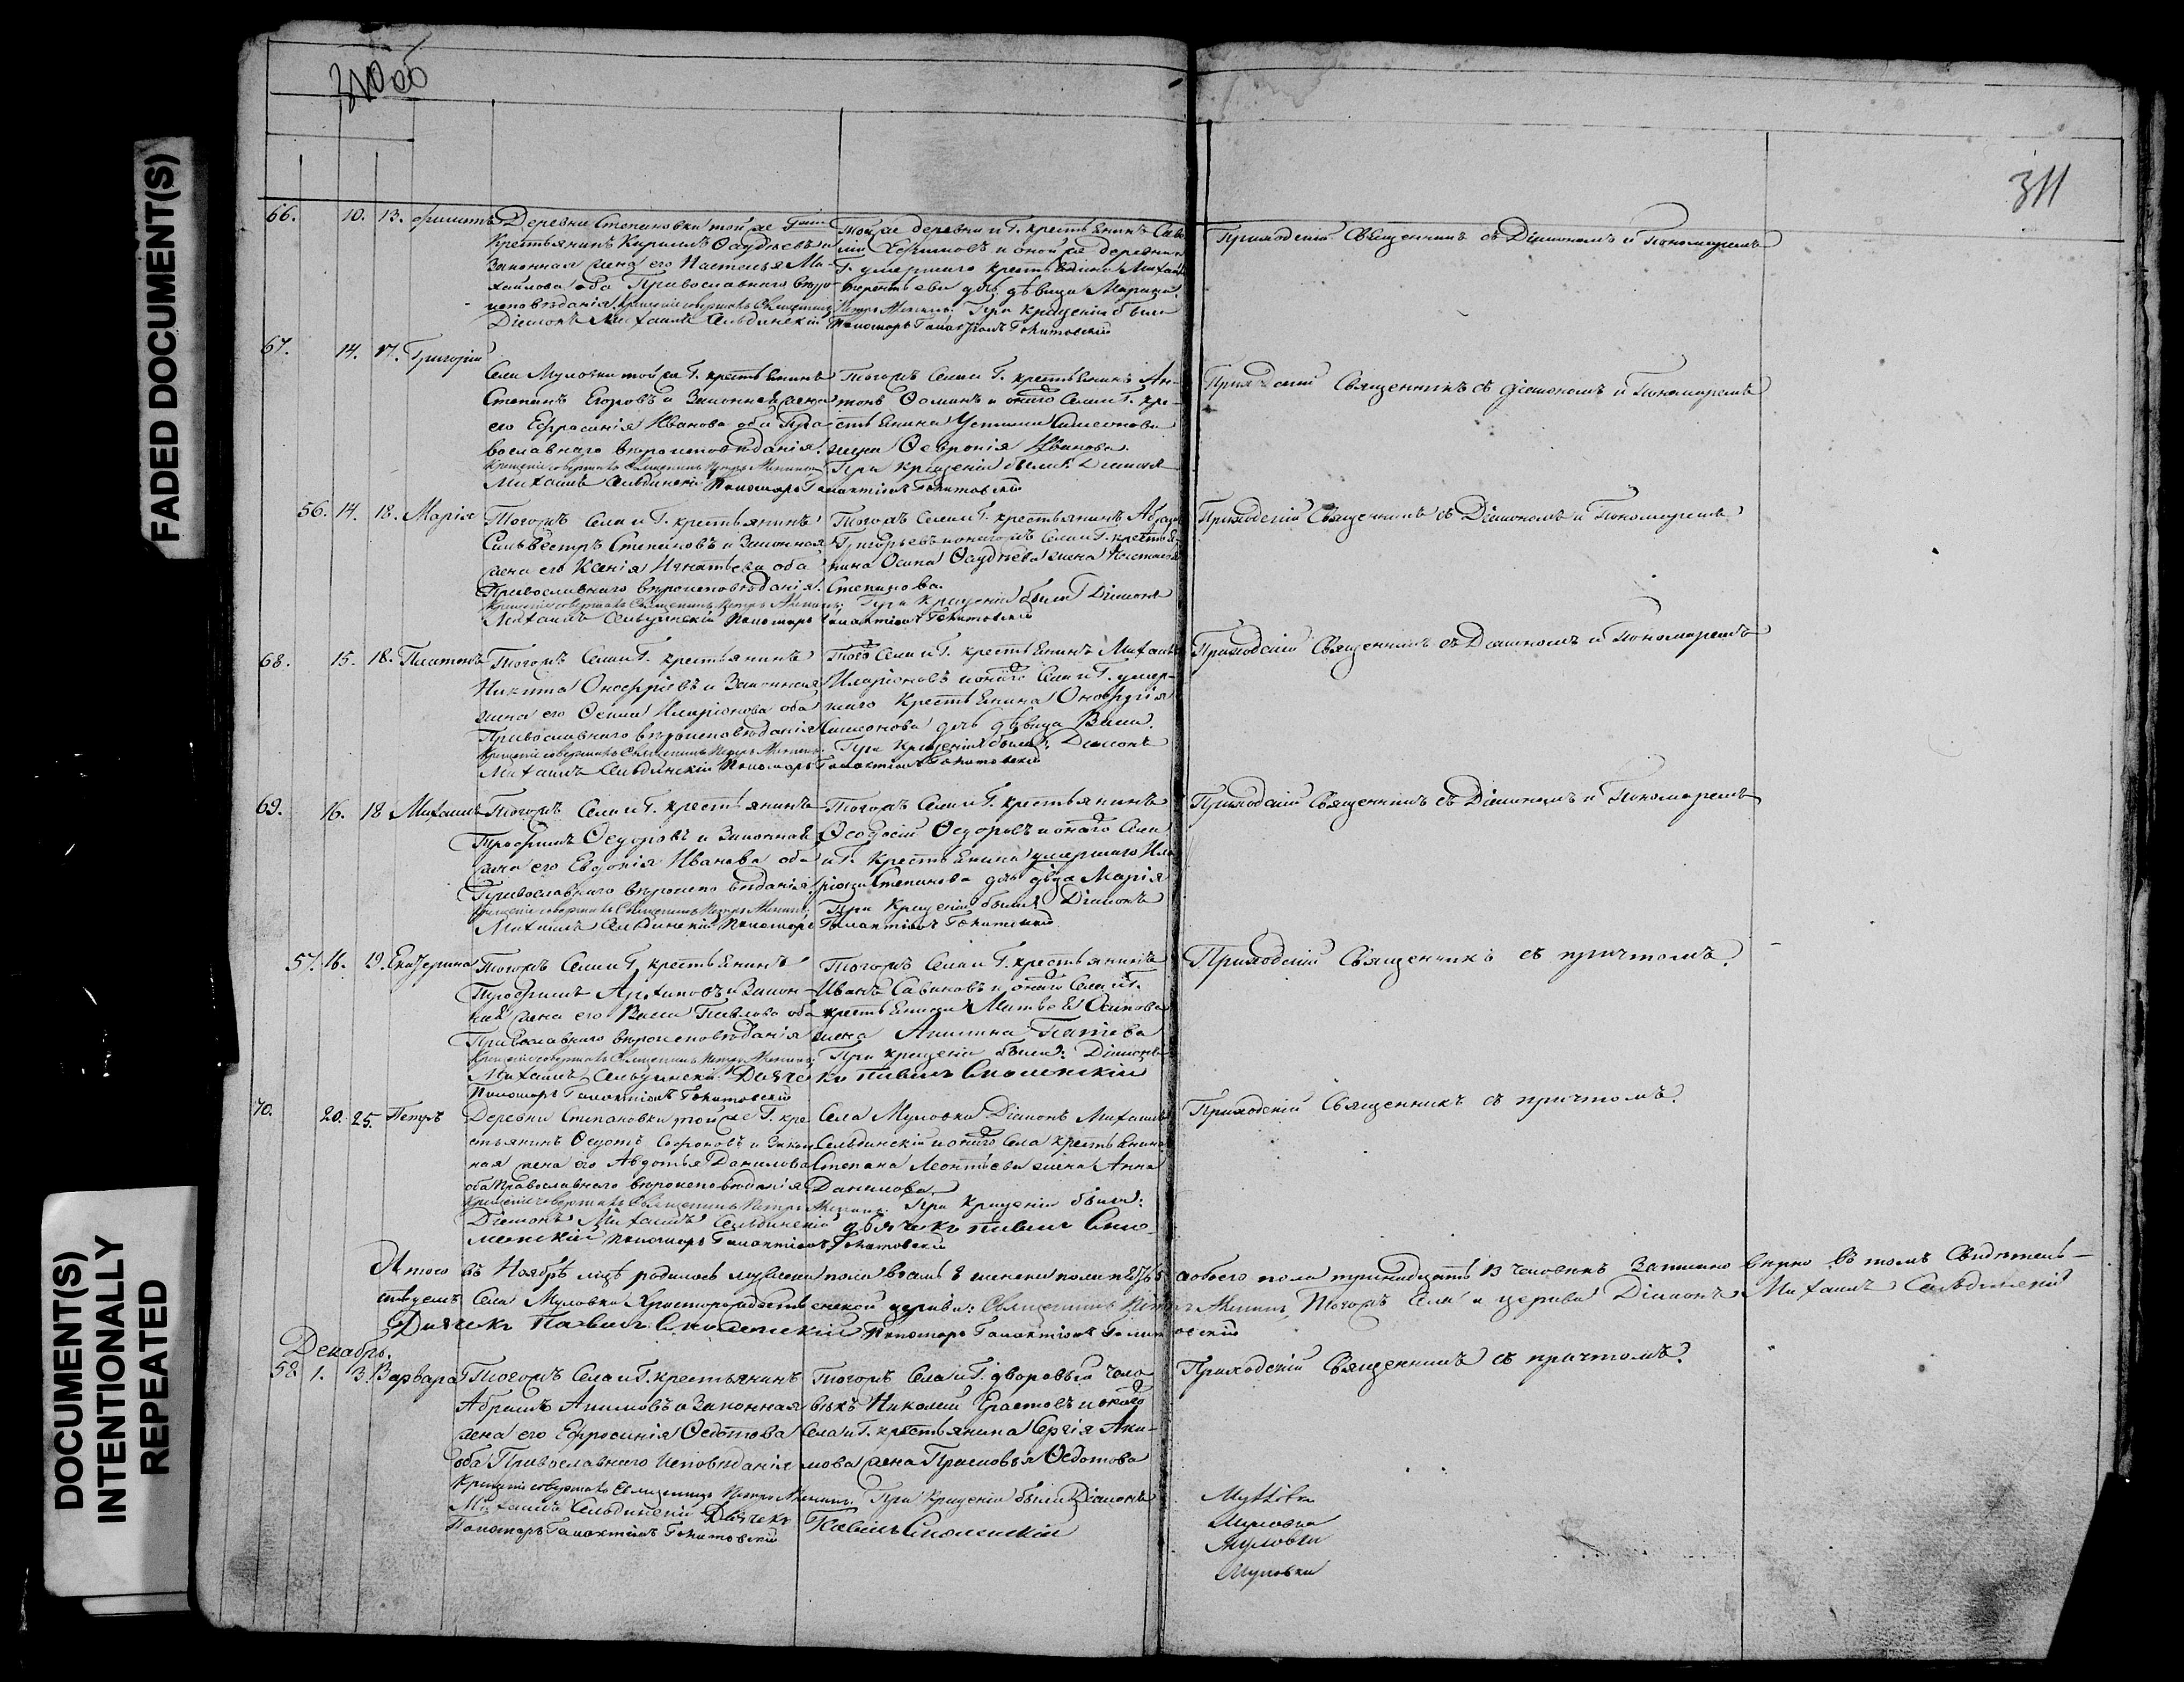 310 об
311
FADED DOCUMENT(S)
DOCUMENT(S) INTENTIONALLY REPEATED
66. 10. 13. Филиппъ
Деревни Степановки той же Г.
Крестьянинъ Кирилъ Фаддѣевъ и
Законная жена его Настасья Ми-
хайлова оба Православнаго вѣро-
исповѣданія. Крещеніе совершалъ Священникъ Петръ
Діаконъ Михаилъ Сельдинскій Пономарь Галактіонъ
Той же деревни и Г. крестьянинъ Сав
Ефимовъ и оной же деревни и
Г. умершаго крестьянина Михаила
Терентьева дочь дѣвица Марина.
При крещеніи были
Приходскій Священникъ съ Діакономъ и Пономаремъ
67. 14. 17. Григорій
Села Муловки той же Г. крестьянинъ
Степанъ Егоровъ и Законная жена
его Ефросинія Иванова оба Пра-
вославнаго вѣроисповѣданія.
Крещеніе совершалъ Священникъ Петръ
Михаилъ Сельдинскій Пономарь Галактіонъ
Тогожъ Села и Г. крестьянинъ Ан-
тонъ Фоминъ и онаго Села и Г. кре-
стьянина Устина Симеонова
жена Февронія Иванова.
При крещеніи были: Діаконъ
Приходскій Священникъ съ Діакономъ и Пономаремъ
56. 14. 18. Марія
Тогожъ Села и Г. крестьянинъ
Сильвестръ Степановъ и Законная
жена его Ксенія Игнатьева оба
Православнаго вѣроисповѣданія.
Крещеніе совершалъ Священникъ Петръ
Михаилъ Сельдинскій Пономарь Галактіонъ
Тогожъ Села и Г. крестьянинъ Абрамъ
Григорьевъ и оногожъ Села и Г. крестья-
нина Осипа Фаддѣева жена Настасья
Степанова.
При крещеніи были Діаконъ
Приходскій Священникъ съ Діакономъ и Пономаремъ
68. 15. 18. Платонъ
Тогожъ Села и Г. крестьянинъ
Никита Онофріевъ и Законная
жена его Илиріонова оба
Православнаго вѣроисповѣданія
Крещеніе совершалъ Священникъ Петръ
Михаилъ Сельдинскій Пономарь Галактіонъ
Того Села и Г. крестьянинъ Михаилъ
Иларіоновъ и онаго Села и Г. умер-
шаго Крестьянина Онофрія
Симонова дочь дѣвица Васса.
При крещеніи были: Діаконъ
Приходскій Священникъ съ Діакономъ и Пономаремъ
69. 16. 18 Михаилъ
Тогожъ Села и Г. крестьянинъ
Трофимъ Федоровъ и Законная
жена его Евдокія Иванова оба
Православнаго вѣроисповѣданія
Крещеніе совершалъ Священникъ Петръ
Михаилъ Сельдинскій Пономарь Галактіонъ
Тогожъ Села и Г. крестьянинъ
Феодосій Федоровъ и онаго Села
и Г. Крестьянина умершаго Ила
ріона Степанова дочь дѣвца Марія
При крещеніи были Діаконъ
Приходскій Священникъ съ Діакономъ и Пономаремъ
57. 16. 19. Екатерина
Тогожъ Села и Г. крестьянинъ
Трофимъ Архиповъ и Закон-
ная жена его Васса Павлова оба
Православнаго вѣроисповѣданія
Крещеніе совершалъ Священникъ Петръ
Михаилъ Сельдинскій Дьячекъ Павелъ Смоленскій
Пономарь Галактіонъ
Тогожъ Села и Г. крестьянинъ
Иванъ Савиновъ и онаго Села и Г.
крестьянина Матвѣя Осипова
жена Акилина
При крещеніи были: Діаконъ
Приходскій Священникъ съ причтомъ.
70. 20. 25. Петръ
Деревни Степановки той же Г. кре
стьянинъ Федотъ Софроновъ и Закон
ная жена его Авдотья Данилова
оба Православнаго вѣроисповѣданія.
Крещеніе совершалъ Священникъ Петръ
Діаконъ Михаилъ Сельдинскій дьячекъ Павелъ Смо-
ленскій Пономарь Галактіонъ
Села Муловки Діаконъ Михаилъ
Сельдинскій и онаго Села крестьянина
Степана Леонтьева жена Анна
Данилова.
При крещеніи были:
Приходскій Священникъ съ причтомъ.
Итого въ Ноябрѣ мцѣ родилось мужеска пола восемь 8 женска пола пять 5 а обоего пола тринадцать 13 человѣкъ Записано вѣрно въ томъ Свидѣтель-
ствуемъ Села Муловки Христорождественской церкви: Священникъ Петръ Тогожъ Села и церкви Діаконъ Михаилъ Сельдинскій
Дьячекъ Павелъ Смоленскій Пономарь Галактіонъ
Декабрь.
58 1. 3. Варвара
Тогожъ Села и Г. крестьянинъ
Абрамъ Акимовъ и Законная
жена его Ефросинія Федотова
оба Православнаго Исповѣданія
Крещеніе совершалъ Священникъ Петръ
Михаилъ Сельдинскій Дьячекъ Павелъ Смоленскій
Пономарь Галактіонъ
Тогожъ Села и Г. дворовый чело
вѣкъ Николай Ерастовъ и онаго
Села и Г. крестьянина Сергія Аки-
мова жена Прасковья Федотова
При крещеніи были Діаконъ
Приходскій Священникъ съ причтомъ.
Муловка
Муловка
Муловки
Муловки